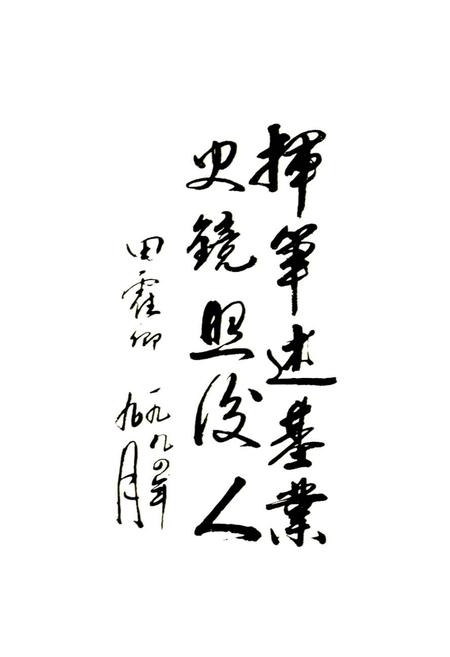 揮筆述基業
史鏡照後人
田霍卿
一九九四年
九月